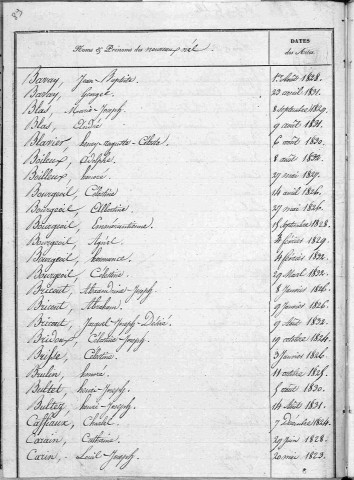 83
Noms & Prénoms des nouveaux nés.
DATES
des Actes
Bavay, Jean-Baptiste. 1er août 1828.
Bavay, 23 avril 1831.
Blas, Marie-Joseph. 8 septembre 1829.
Blas, André. 9 août 1831.
Blavier, henry-auguste- 6 août 1830.
Boileux, adolphe. 8 août 1832.
Boilleux, honoré. 27 mai 1829.
Bourgeois, Célestine. 14 août 1826.
Bourgeois, Célestine. 27 mai 1826.
Bourgeois, 15 septembre 1828.
Bourgeois, 4 février 1829.
Bourgeois, hermance. 4 février 1832.
Bourgeois, Célestine. 29 Mars 1832.
Bricout, Alexandrine-Joseph. 8 janvier 1826.
Bricout, Abraham. 9 janvier 1826.
Bricout, Joseph-Désiré. 9 août 1832.
Bridoux, Célestine-Joseph. 19 octobre 1824.
Brisse, Célestine. 3 janvier 1826.
Brulin, honoré. 11 octobre 1828.
Bultel, henri-Joseph. 5 août 1830.
Bultez, henri-Joseph. 14 août 1831.
Caffeaux, Charles. 7 décembre 1824.
Carain, Catherine. 29 juin 1828.
Carin, Louis-Joseph. 20 mai 1823.